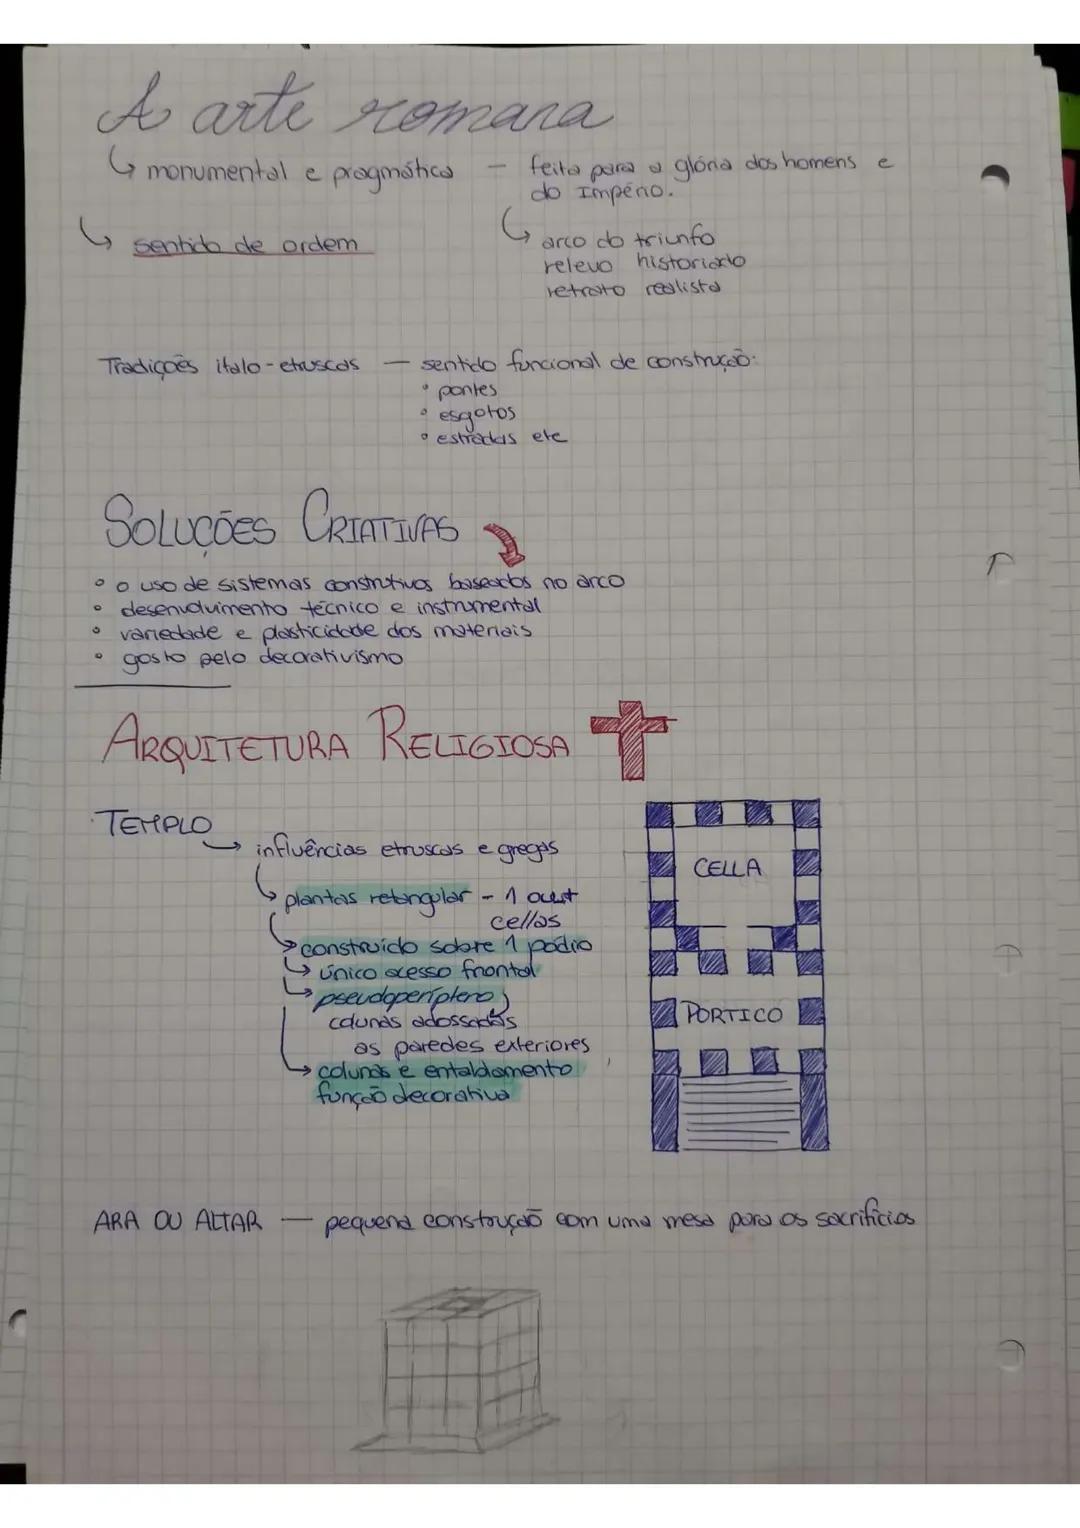 A arte romana
monumental e pragmática — feita para a glória dos homens e
do Império.
sentido de ordem
arco do triunfo
relevo historiado
retrato realista
Tradições italo-etruscas — sentido funcional de construção:
• pontes
• esgotos
• estradas etc
SOLUÇÕES CRIATIVAS
• o uso de sistemas construtivos baseados no arco
• desenvolvimento técnico e instrumental
• variedade e plasticidade dos materiais
• gosto pelo decorativismo
ARQUITETURA RELIGIOSA
TEMPLO
influências etruscas e gregas
plantas retangular - 1
cellas
construído sobre 1 pódio
único acesso frontal
pseudoperíptero
colunas adossadas
as paredes exteriores
colunas e entablamento
função decorativa
CELLA
PORTICO
ARA OU ALTAR — pequena construção com uma mesa para os sacrifícios